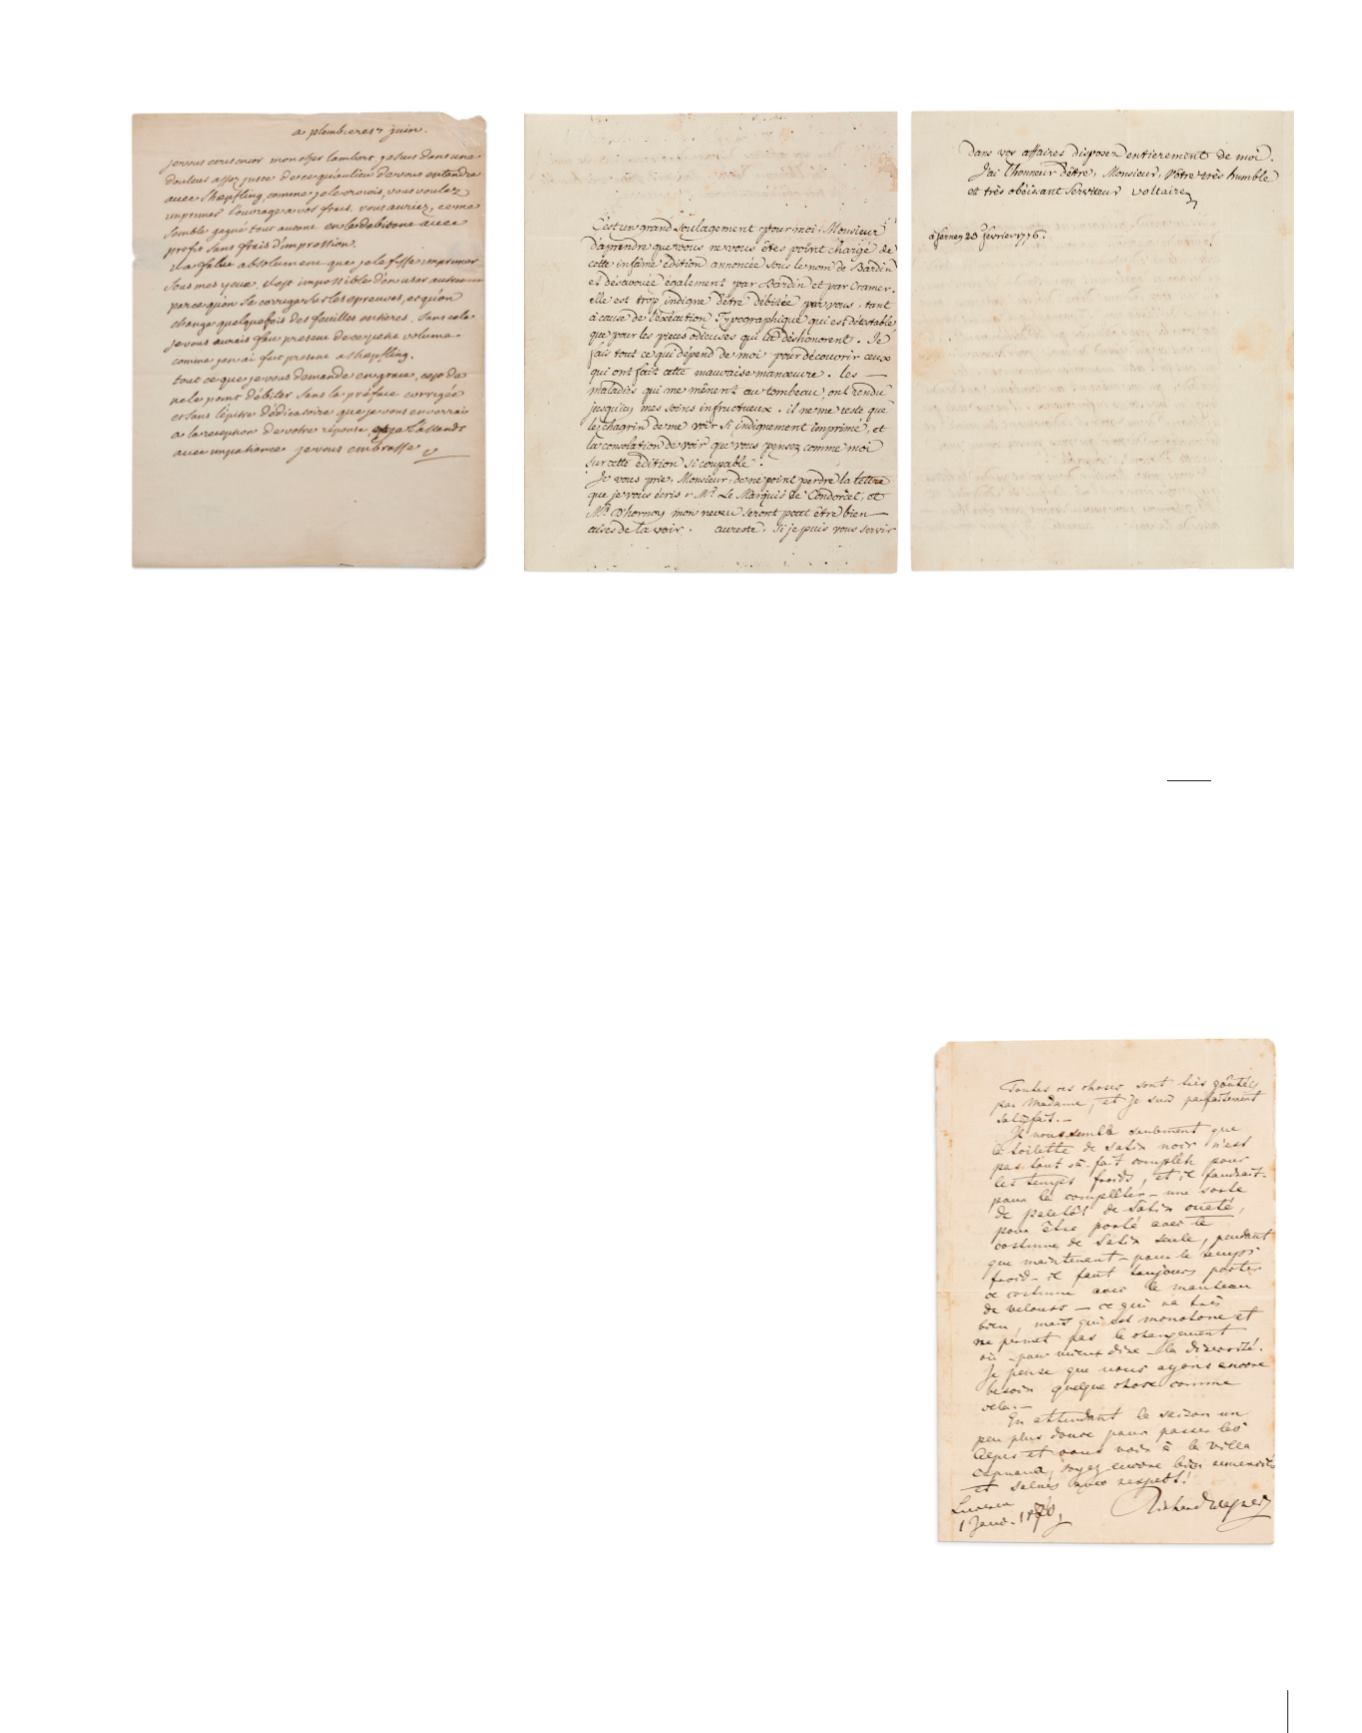 a plombieres 7 juin.
je vous ecris encor mon cher lambert, je suis dans une
douleur assez juste de ce qu'au lieu de vous entendre
avec Shepfling, comme je le croiois, vous voulez
imprimer l'ouvrage a vos frais. vous auriez, ce me
semble gagné tout autant en le debitant avec
profit sans frais d'impression.
il a falu absolument que je le fisse imprimer
sous mes yeux. il est impossible d'en user autrement
parce qu'on se corrige sur les epreuves, et qu'on
change quelquefois des feuilles entieres. sans cela
je vous aurais fait present de ce petit volume
comme j'en ai fait present a Shepfling.
tout ce que je vous demande en grace, c'est de
ne le point débiter sans la préface corrigée
et sans l'épitre dédicatoire que je vous enverrai
a la reception de votre réponse, et je l'attends
avec impatience je vous embrasse V
C'est un grand soulagement pour moi, Monsieur
d'aprendre que vous ne vous êtes point chargé de
cette infâme édition annoncée sous le nom de Bardin
et désavouée également par Bardin et par Cramer.
elle est trop indigne d'être débitée par vous, tant
à cause de l'exécution Typographique qui est détestable
que pour les pieces odieuses qui la déshonorent. Je
fais tout ce qui dépend de moi pour découvrir ceux
qui ont fait cette mauvaise manœuvre. les —
maladies qui me mênent au tombeau, ont rendu
jusqu'icy mes soins infructueux. il ne me reste que
le chagrin de me voir si indignement imprimé, et
la consolation de voir que vous pensez comme moi
sur cette édition si coupable.
Je vous prie, Monsieur, de ne point perdre la lettre
que je vous écris; Mr. Le Marquis de Condorcet, et
Mr. D'hornoy mon neveu seront peut être bien —
aises de la voir. aureste, si je puis vous servir
dans vos affaires disposez entierement de moi.
J'ai l'honneur d'être, Monsieur, Vôtre très humble
et très obéissant serviteur voltaire
à ferney 23 février 1776.
Toutes ces choses sont très goûtés
par Madame, et je suis parfaitement
satisfait.—
Il nous semble seulement que
la toilette de satin noir n'est
pas tout-à-fait complète pour
les temps froids, et il faudrait-
pour la compléter - une sorte
de paletôt de satin oueté,
pour être porté avec le
costume de satin seule, pendant
que maintenant - pour le temps
froid - il faut toujours porter
ce costume avec le manteau
de velours — ce qui va très
bien, mais qui est monotone et
ne permet pas le changement
ou - pour mieux dire - la diversité.
Je pense que nous ayons encore
besoin quelque chose comme
cela.—
En attendant la saison un
peu plus douce pour passer les
Alpes et vous voir à la villa
soyez encore bien remerciés
et salués avec respect!
Lucerne
1 Janv. 1870,
Richard Wagner